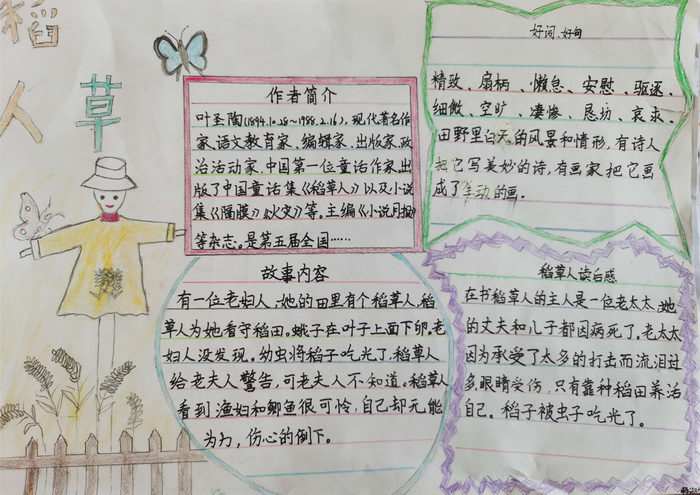 稻
草
人
作者简介
叶圣陶(1894.10.28~1988.2.16)、现代著名作
家、语文教育家、编辑家、出版家、政
治活动家,中国第一位童话作家,出
版了中国童话集《稻草人》以及小说
集《隔膜》《火灾》等。主编《小说月报》
等杂志。是第五届全国……
好词、好句
精致、扇柄、懒怠、安慰、驱逐、
细微、空旷、凄惨、恳切、哀求、
田野里白天的风景和情形,有诗人
把它写美妙的诗,有画家把它画
成了生动的画。
故事内容
有一位老妇人,她的田里有个稻草人,稻
草人为她看守稻田。蛾子在叶子上面下卵。老
妇人没发现。幼虫将稻子吃光了,稻草人
给老夫人警告,可老夫人不知道。稻草人
看到渔妇和鲫鱼很可怜,自己却无能
为力,伤心的倒下。
稻草人读后感
在书稻草人的主人是一位老太太,她
的丈夫和儿子都因病死了。老太太
因为承受了太多的打击而流泪过
多眼睛受伤,只有靠种稻田养活
自己。稻子被虫子吃光了。